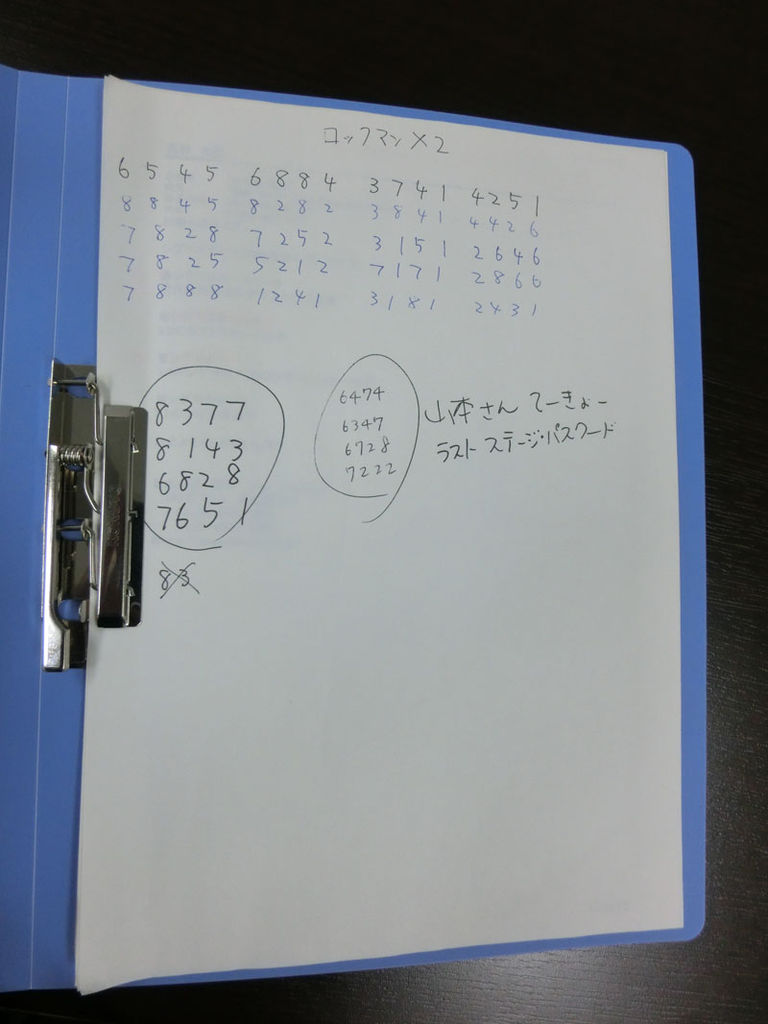 ロックマンX2
6545 6884 3741 4251
8845 8282 3841 4426
7828 7252 3151 2646
7825 5212 7171 2866
7888 1241 3181 2431
8377
8143
6828
7651
83
6474
6347
6728
7222
山本さん てーきょー
ラストステージ・パスワード